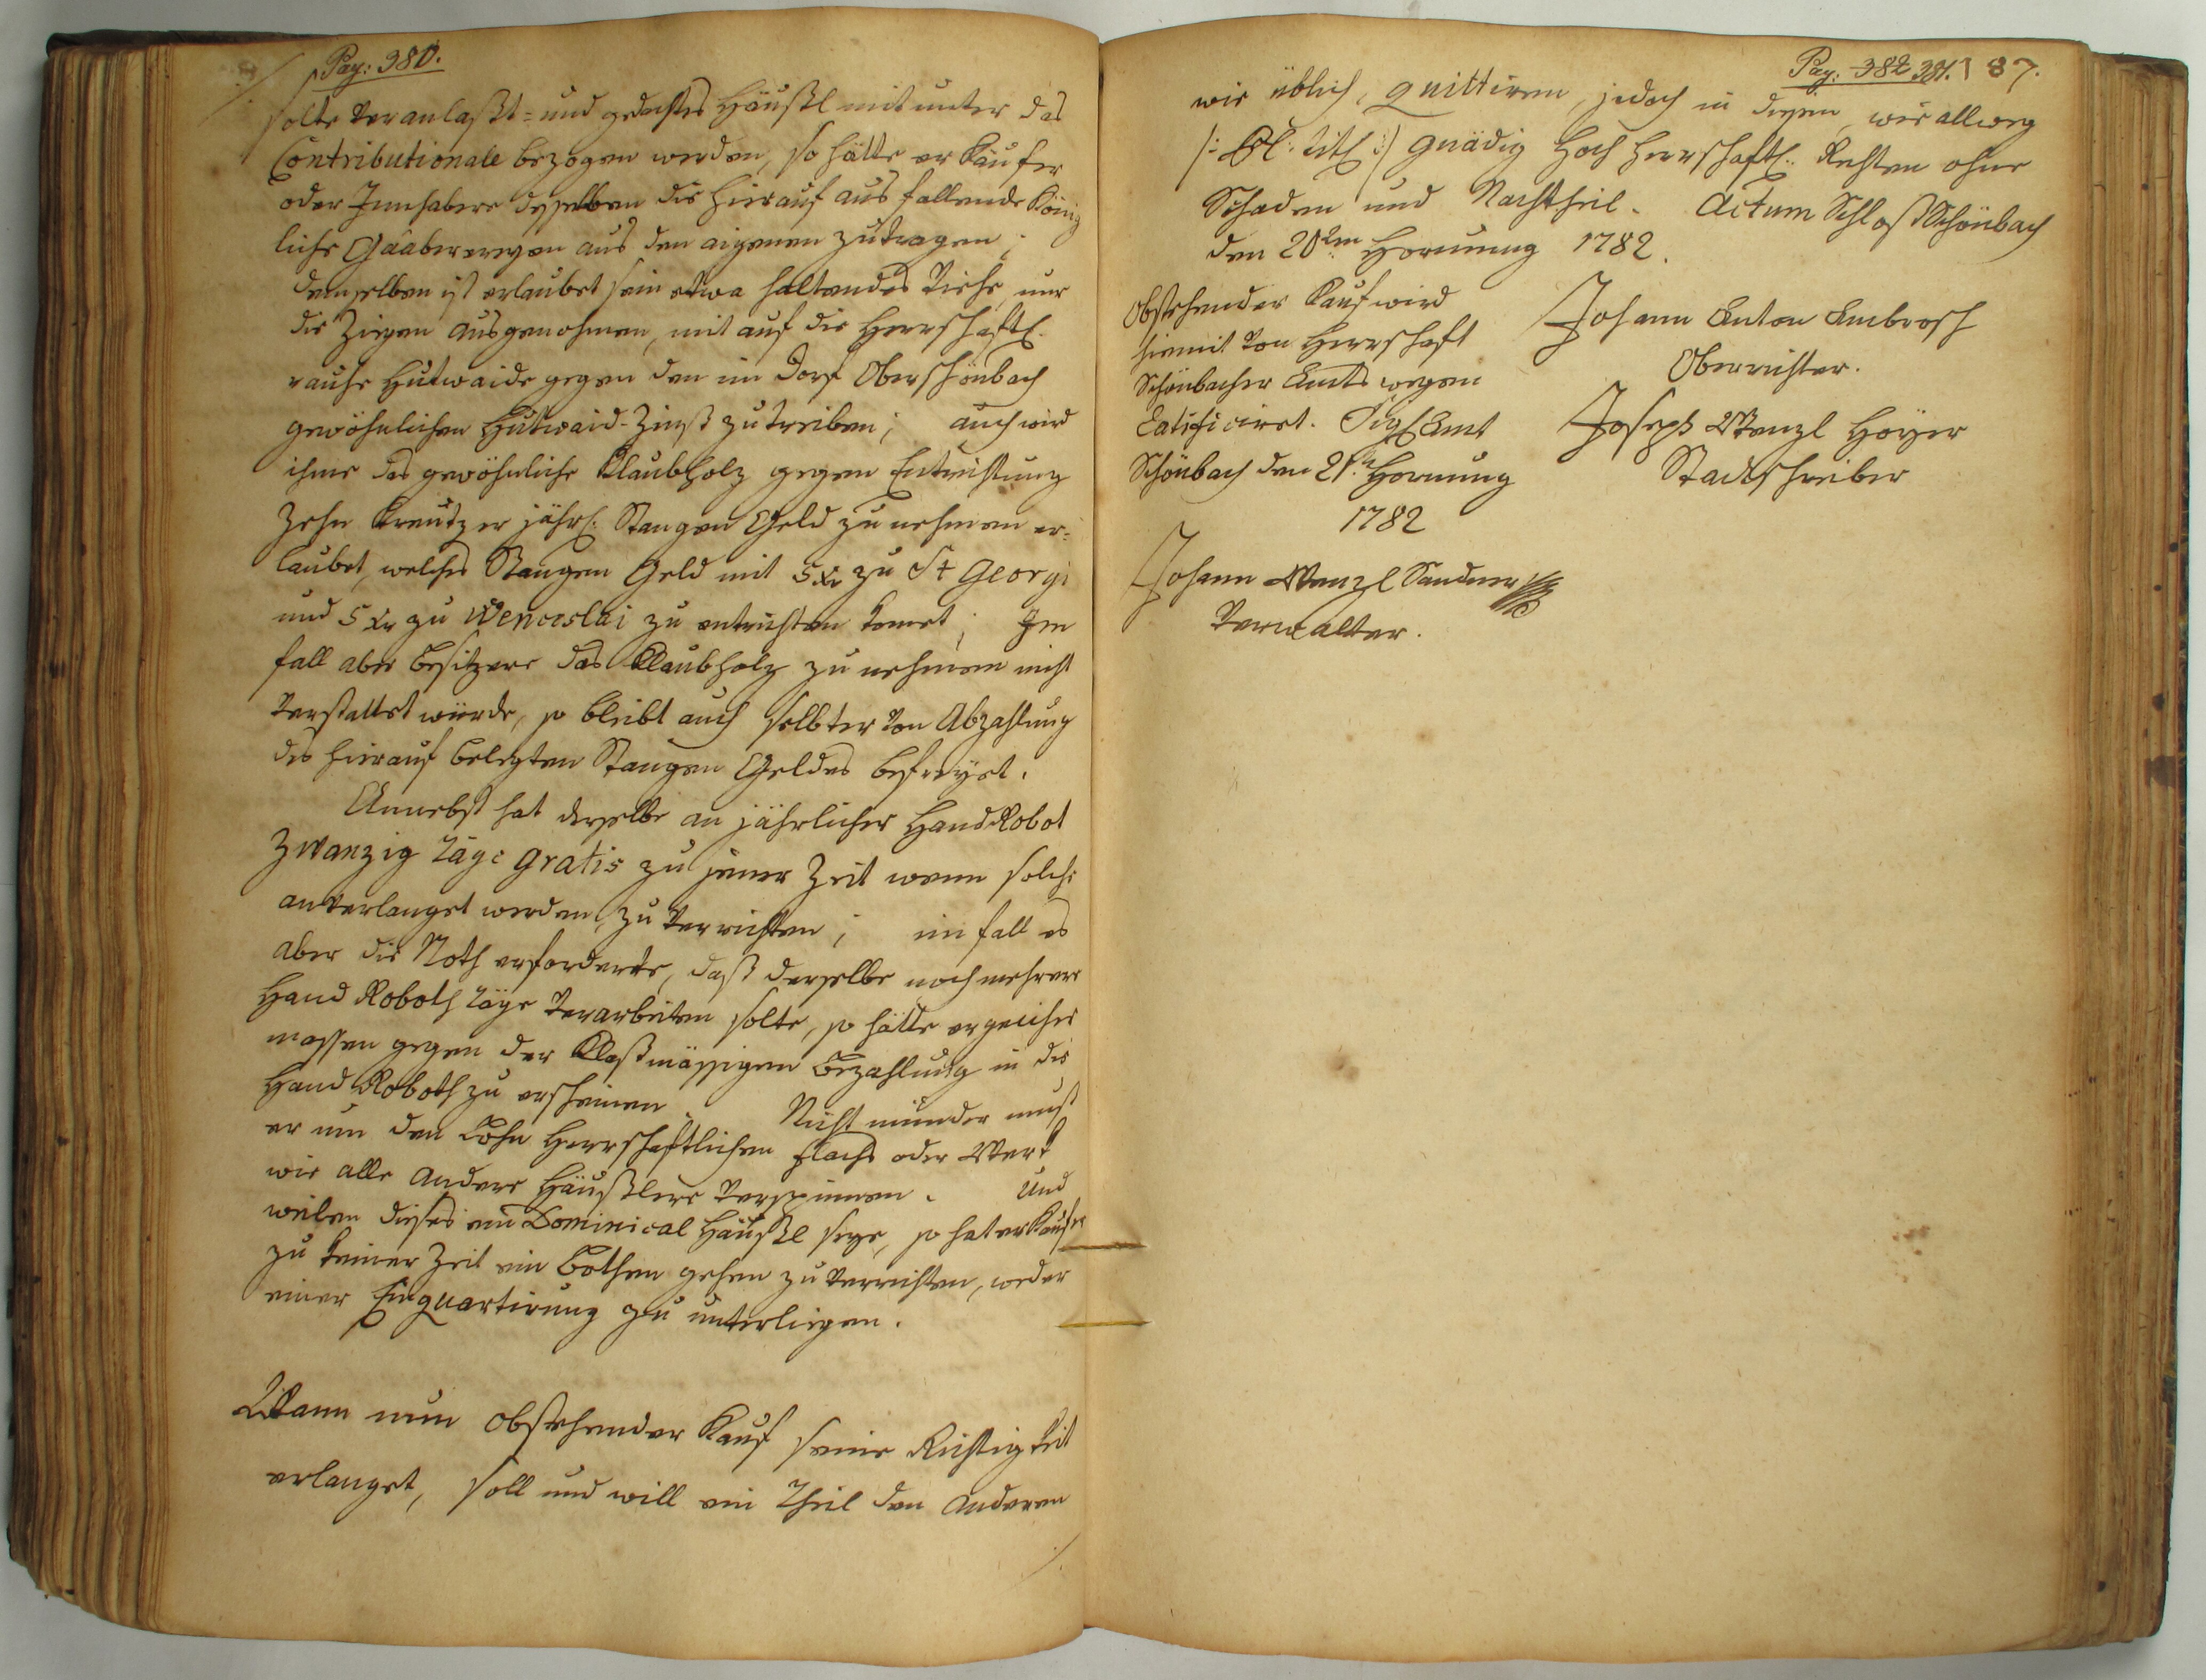 Pag: 380.
solte veranlaßt= und gedachtes Häußl mit unter das
Contributionale bezogen werden, so hätte er Käufer
oder Innhabere desselben die hierauf ausfallende König
liche Gaaben aus den aigenen zutragen;
demselben ist erlaubet sein etwa haltendes Viehe, nur
die Ziegen ausgenohmen, mit auf die Herrschaftl.
rauhe Hutwaide gegen den im Dorf Oberschönbach
gewöhnlichen Hutwaid-Zinß zu treiben; auch wird
ihme das gewöhnliche Klaubholz gegen Entrichtung
Zehn Kreutzer jährl: Stangen Geld zu nehmen er=
laubet, welches Stangen Geld mit 5 Xr zu St Georgi
und 5 Xr zu Wenceslai zu entrichten komet; Im
fall aber Besitzere das Klaubholz zu nehmen nicht
verstattet würde, so bleibt auch selbter von Abzahlung
des hierauf belegten Stangen Geldes befreyet.
Annebst hat derselbe an jährlicher Hand Robot
Zwanzig Täge gratis zu jener Zeit wenn solche
anverlanget werden, zu verrichten; im fall es
aber die Noth erforderte, daß derselbe noch mehrere
Hand Roboth Täge verarbeiten solte, so hätte er gleicher
massen gegen der Klaßmässigen Bezahlung in die
Hand Roboth zu erscheinen. Nicht minder muß
er um den Lohn Herrschaftlichen Flachs oder Werk
wie alle andere Häußlere verspinnen. Und
weilen dieses ein Dominical Häußl seye, so hat er Kaufer
zu keiner Zeit ein Bothen gehen zu verrichten, weder
einer Einquartirung zu unterliegen.
Wann nun obstehender Kauf seine Richtigkeit
erlanget, soll und will ein Theil den anderen
./.
Pag: 382 381. 187.
wie üblich, quittiren, jedoch in diesen, wie allweg
/: Pl: Titl :/ gnädig Hoch Herrschaftl: Rechten ohne
Schaden und Nachtheil. Actum Schloß Schönbach
den 20ten Hornung 1782.
Obstehender Kauf wird
hiemit von Herrschaft
Schönbacher Amts wegen
ratificiret. Sigl Amt
Schönbach den 21n Hornung
1782
Johann Wenzl Sandner
Verwalter.
Johann Anton Ambrosch
Oberrichter.
Joseph Wenzl Hoyer
Stadtschreiber